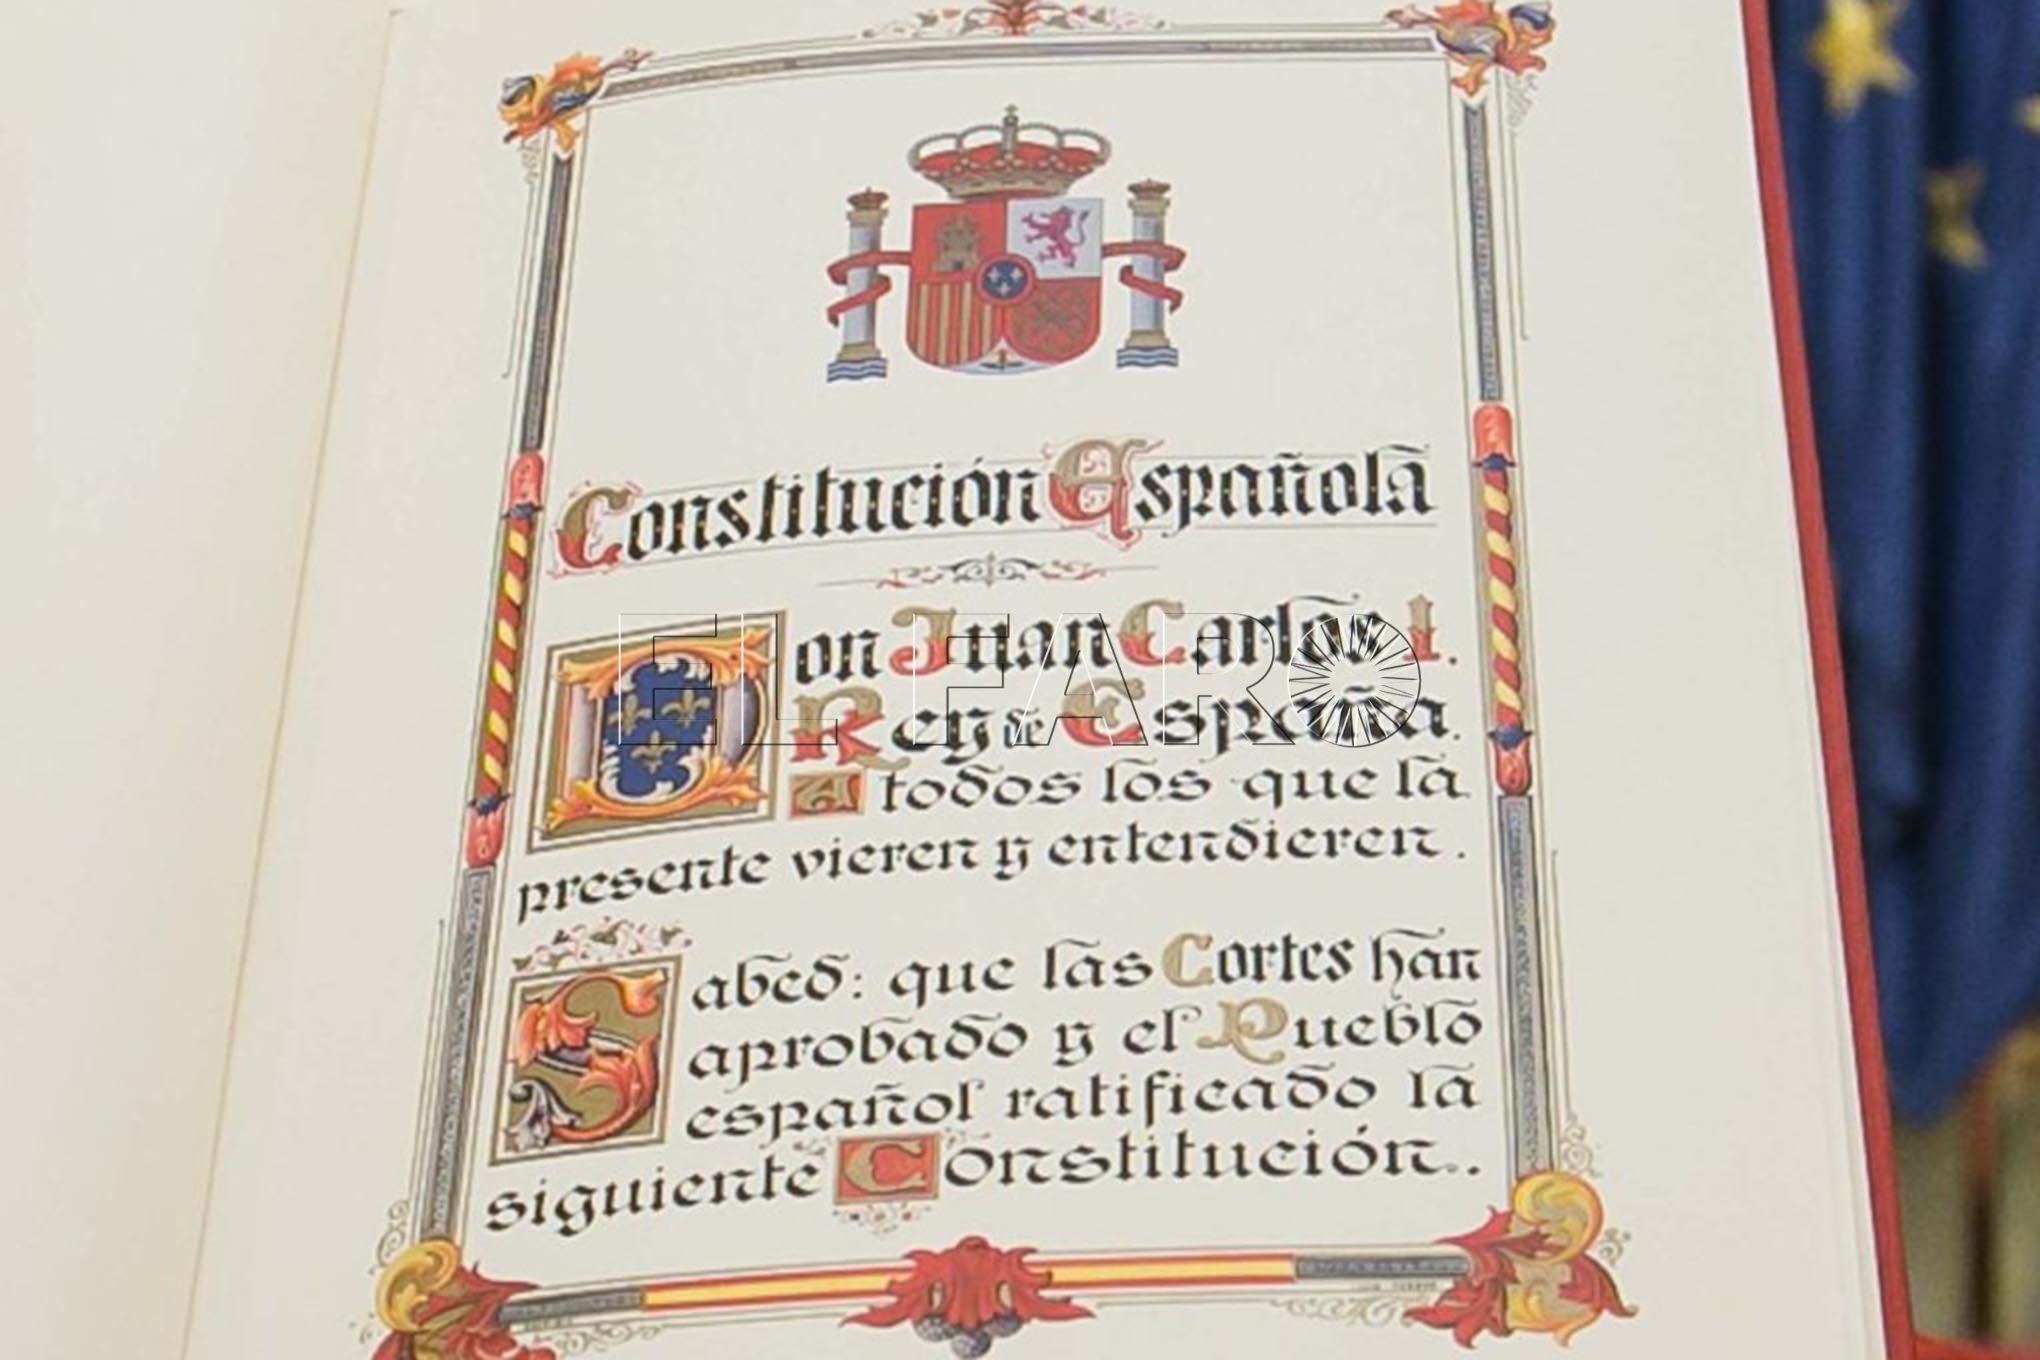 Constitución Española
Don Juan Carlos I.
Rey de España.
A todos los que la
presente vieren y entendieren.
Sabed: que las Cortes han
aprobado y el Pueblo
español ratificado la
siguiente Constitución.
EL FARO